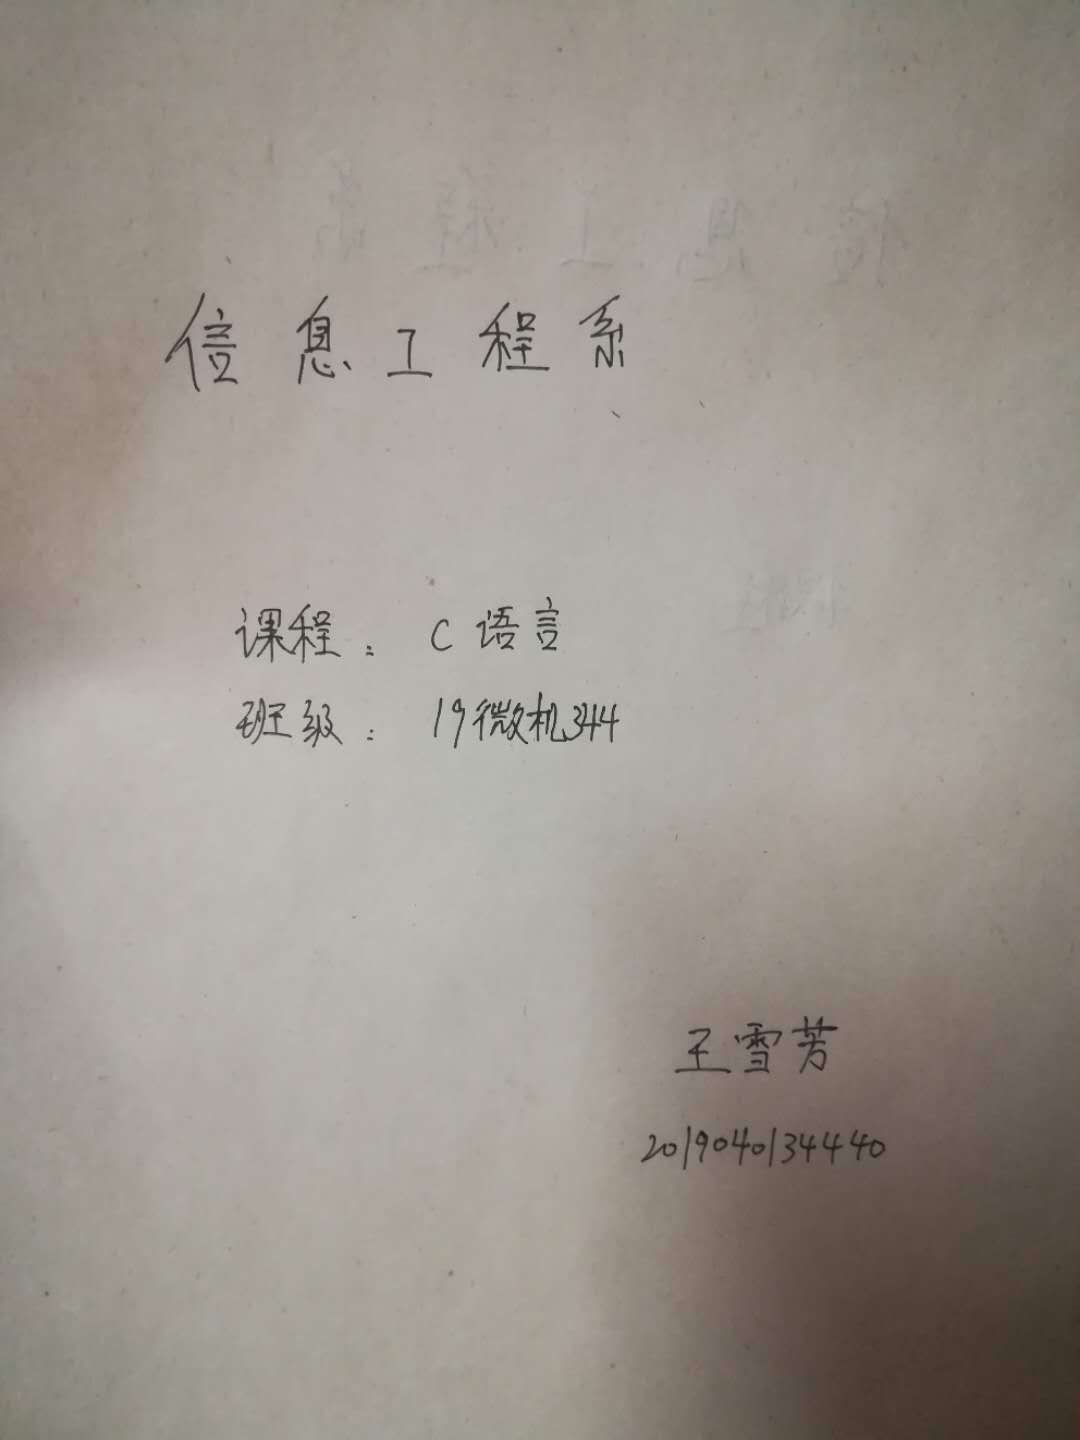 信息工程系
课程：C语言
班级：19微机344
王雪芳
201904013440